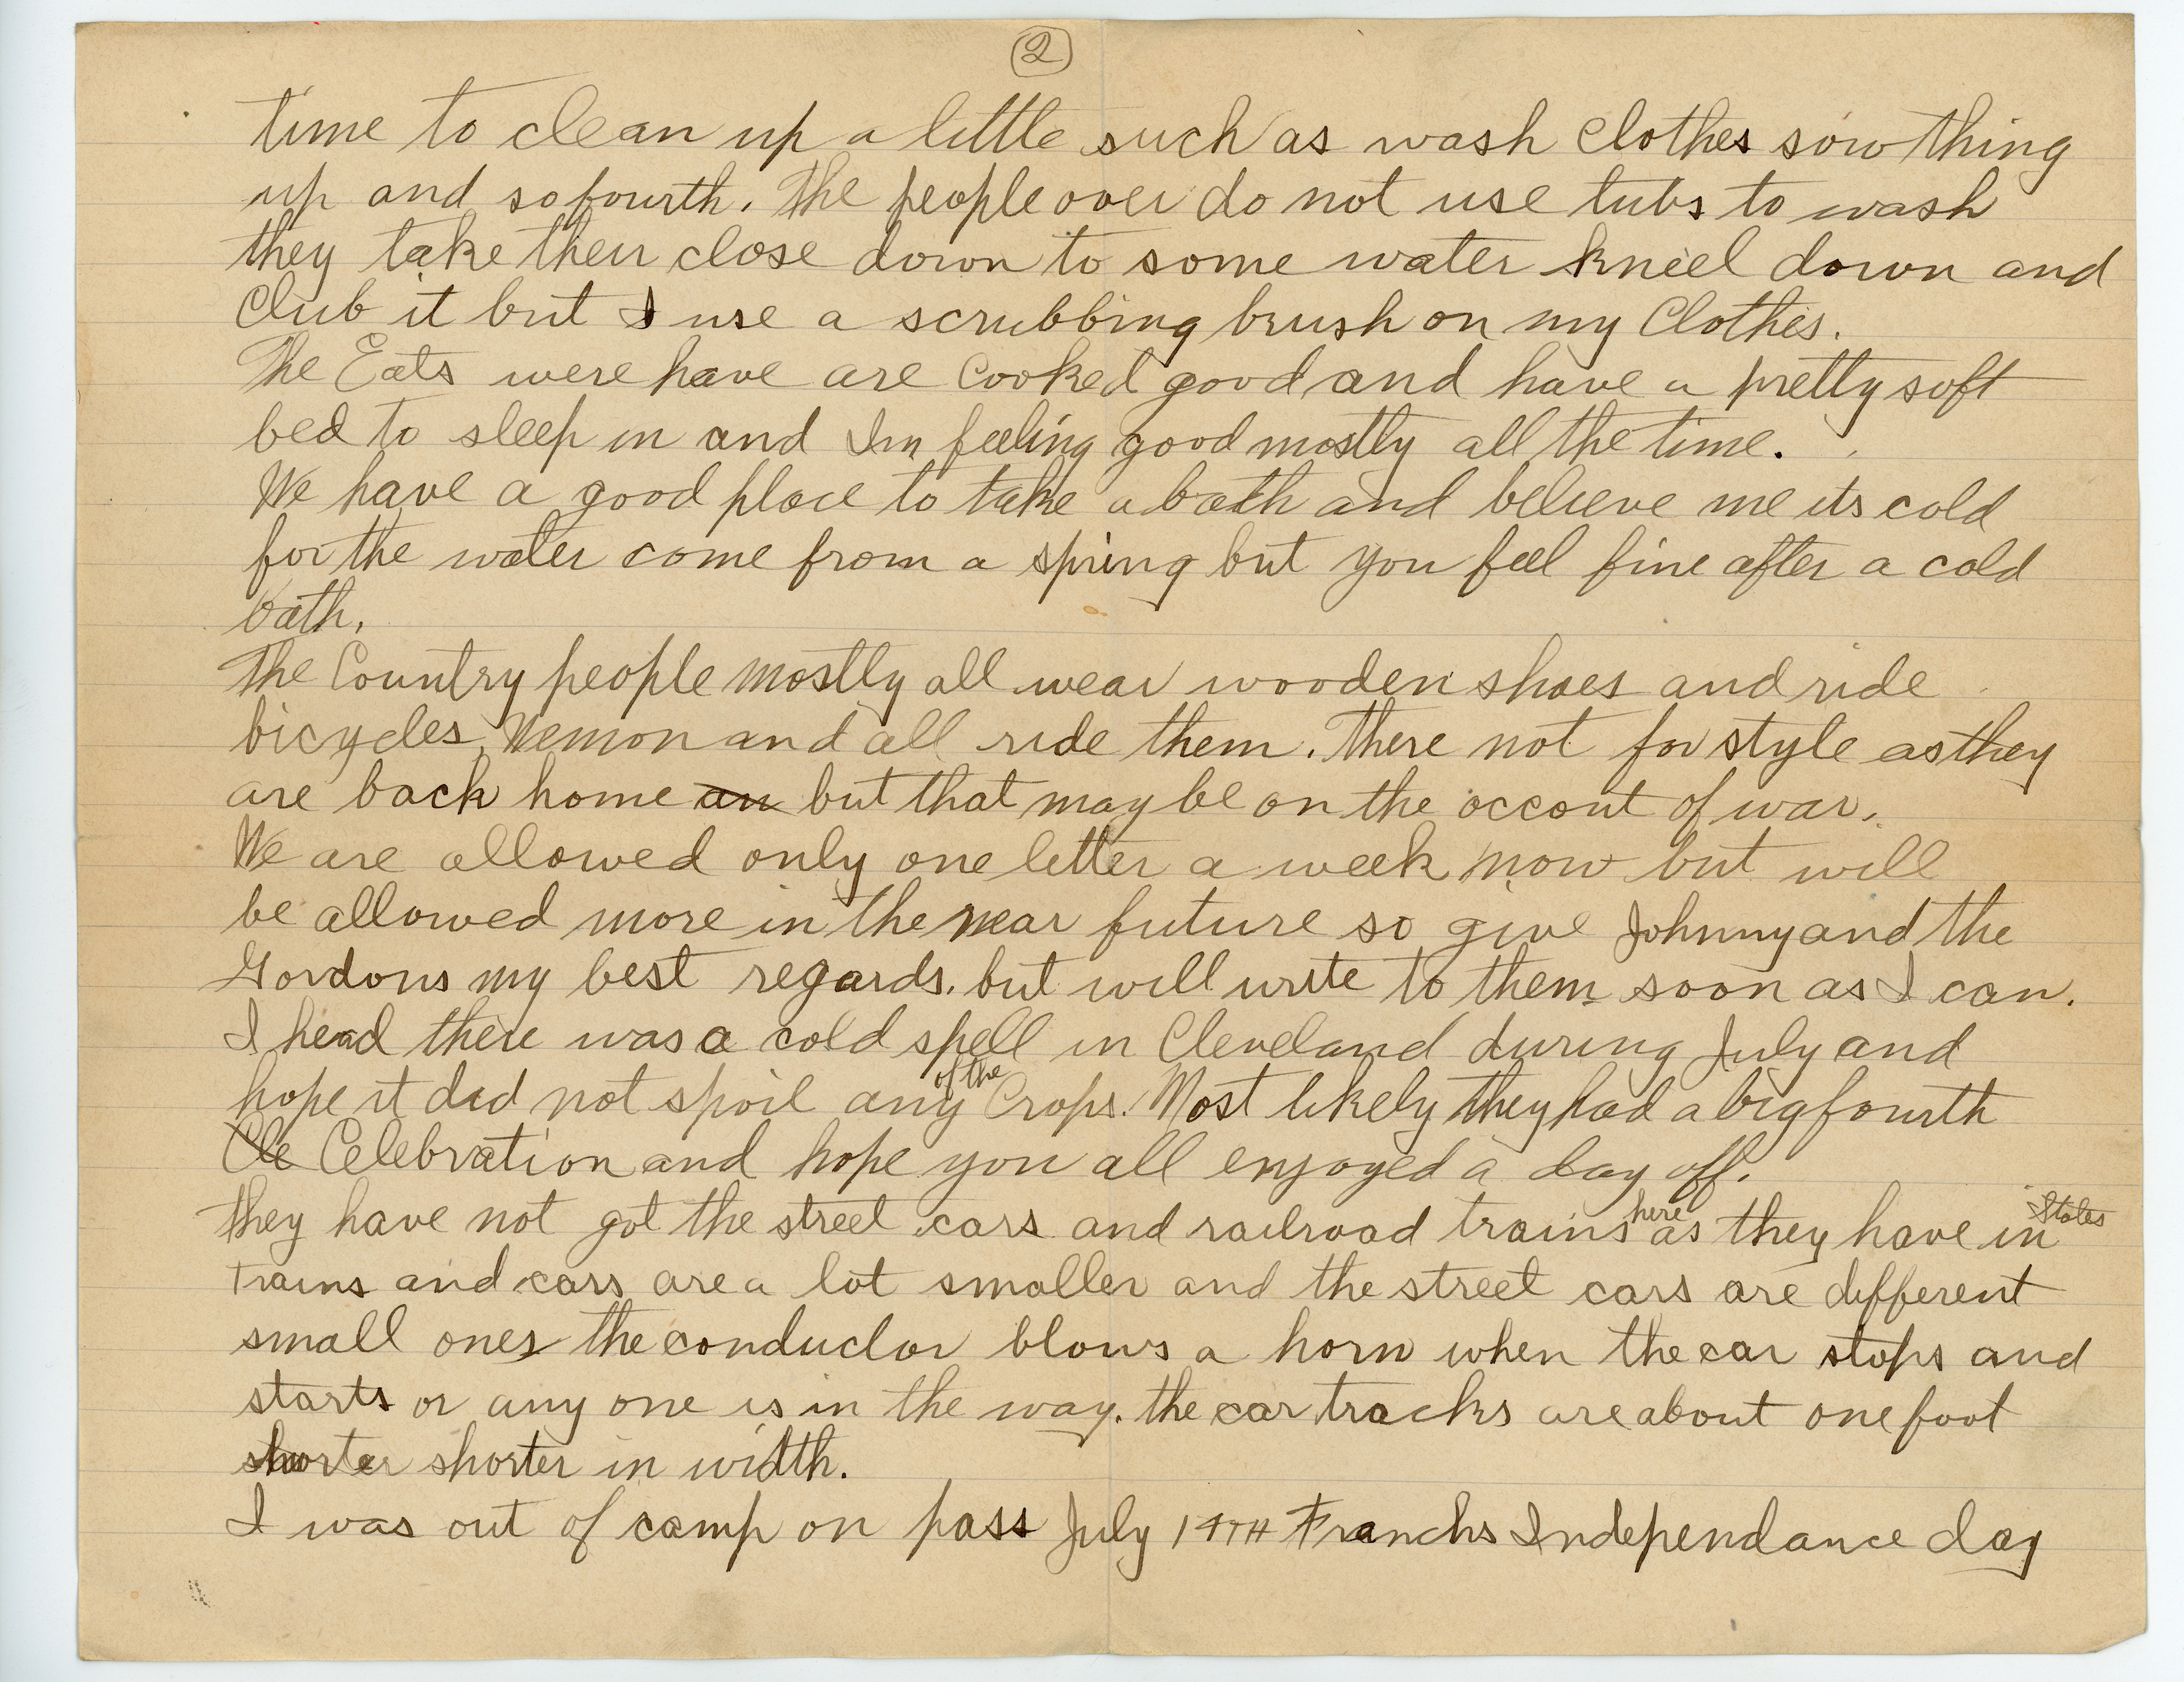 2
time to clean up a little such as wash clothes sow thing
up and so fourth. The people over do not use tubs to wash
they take their close down to some water kneel down and
Club it but I use a scrubbing brush on my Clothes.
The Eats were have are Cooked good and have a pretty soft
bed to sleep in and Im feeling good mostly all the time.
We have a good place to take a bath and believe me its cold
for the water come from a spring but you feel fine after a cold
bath.
The Country people mostly all wear wooden shoes and ride
bicycles, Wemon and all ride them. There not for style as they
are back home an but that may be on the occont of war.
We are allowed only one letter a week now but will
be allowed more in the near future so give Johnny and the
Gordons my best regards. but will write to them soon as I can.
I head there was a cold spell in Cleveland during July and
hope it did not spoil any of the Crops. Most likely they had a big fourth
Cle Celebration and hope you all enjoyed a day off.
they have not got the street cars and railroad trains here as they have in States
trains and cars are a lot smaller and the street cars are different
small ones the conductor blows a horn when the car stops and
starts or any one is in the way. the car tracks are about one foot
shorter shorter in width.
I was out of camp on pass July 14TH Franchs Independance day